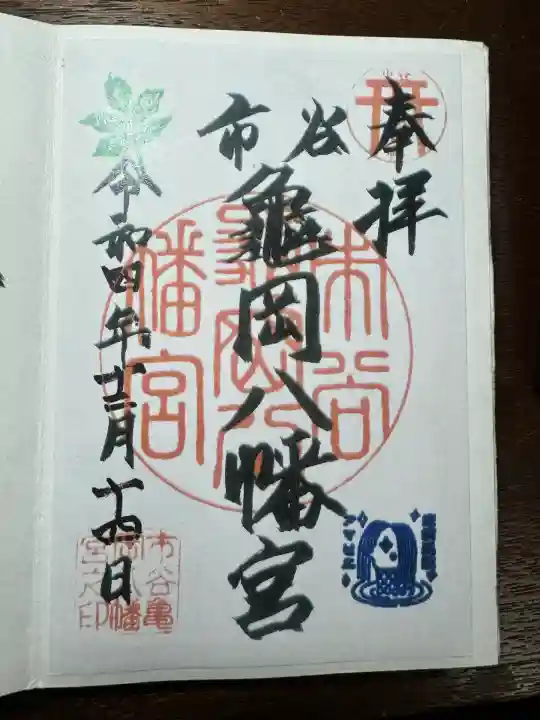 奉拝
市谷
龜岡八幡宮
令和四年十二月十四日
市谷
龜岡八
幡宮
市谷亀
岡八幡
宮之印
アマビエ